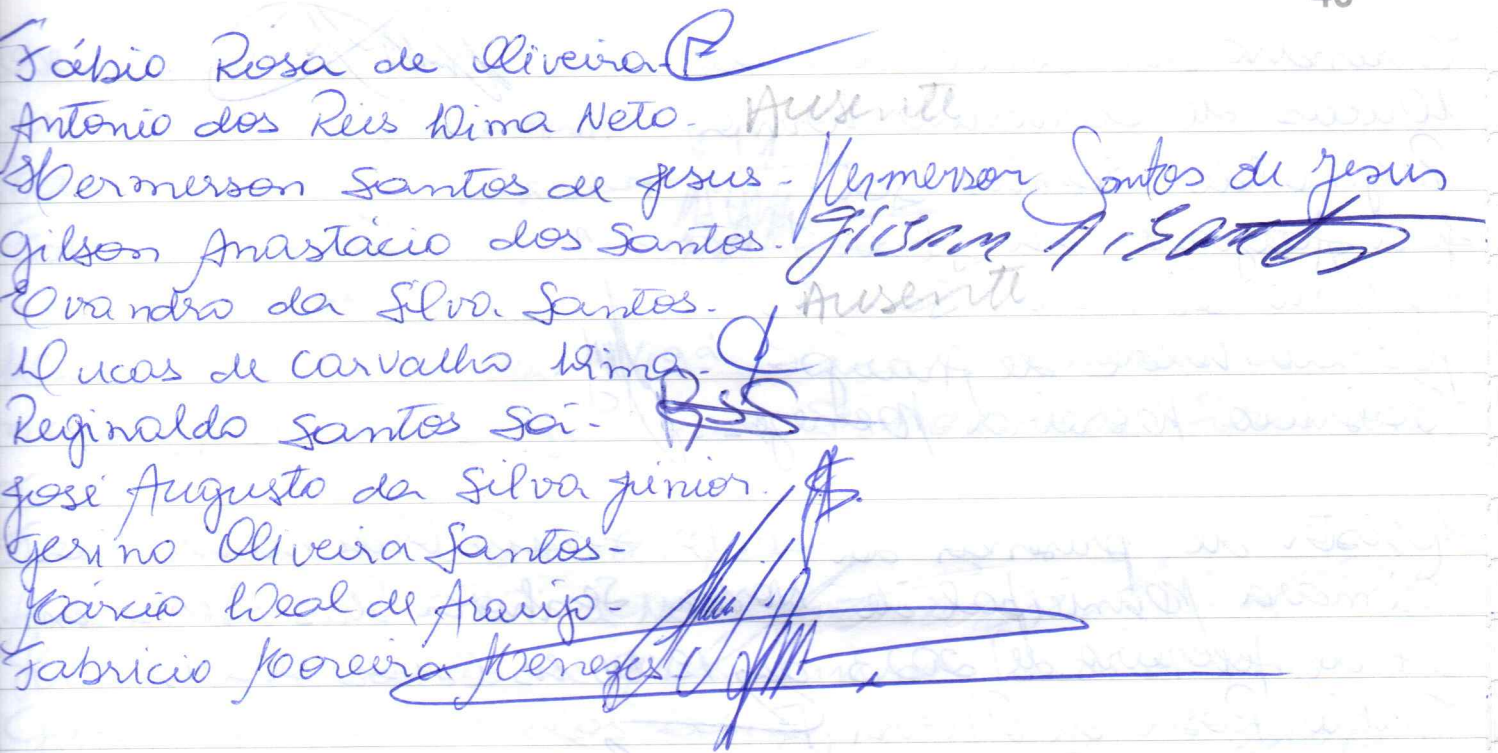 Fábio Rosa de Oliveira-
Antonio dos Reis Lima Neto- Ausente
Hermerson Santos de Jesus- Hermerson Santos de Jesus
Gilson Anastácio dos Santos- Gilson A. Santos
Evandro da Silva Santos- Ausente
Lucas de Carvalho Lima-
Reginaldo Santos Sá- RSS
José Augusto da Silva Júnior.
Gerino Oliveira Santos-
Márcio Leal de Araujo-
Fabricio Moreira Menezes